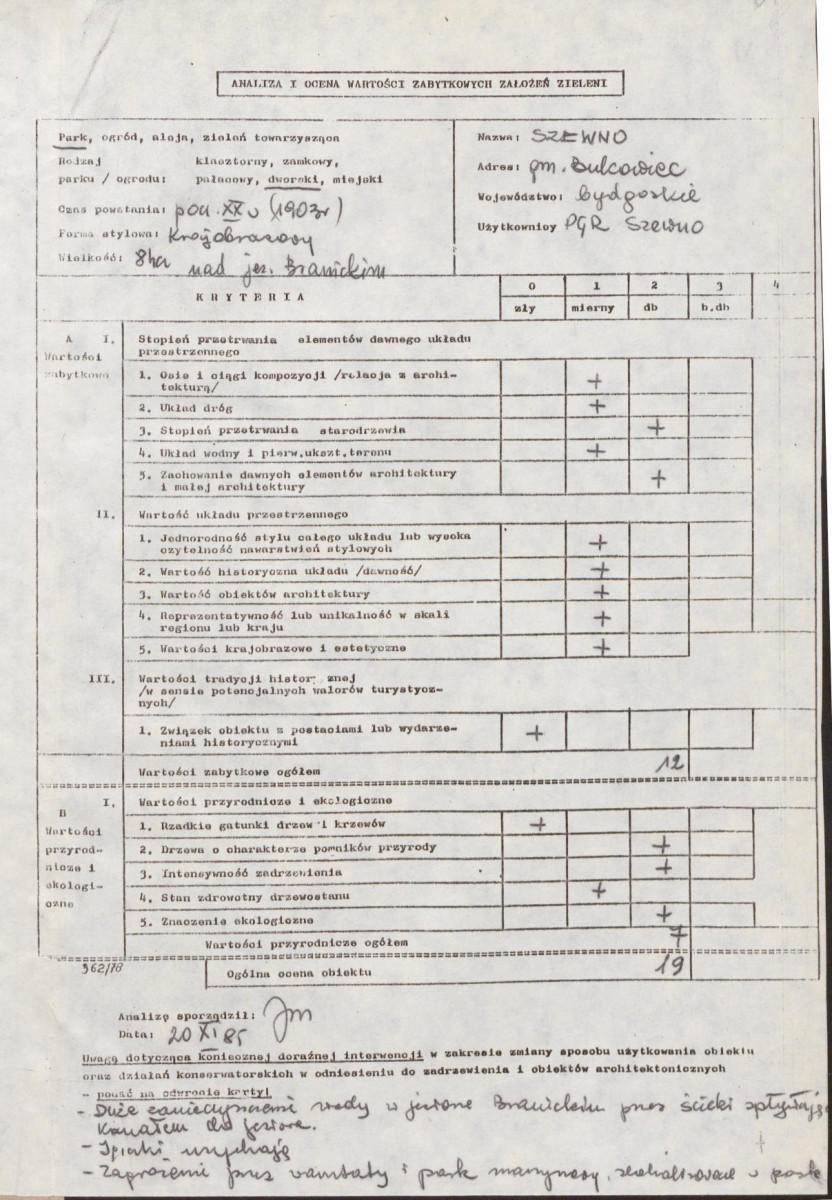 ANALIZA I OCENA WARTOŚCI ZABYTKOWYCH ZAŁOŻEŃ ZIELENI
Park, ogród, aleja, zieleń towarzysząca
Rodzaj klasztorny, zamkowy,
parku / ogrodu: pałacowy, dworski, miejski
Czas powstania: pocz. XX w (1903r)
Forma stylowa: Krajobrazowy
Wielkość: 8ha nad jez. Branickim
Nazwa: SZEWNO
Adres: gm. Bukowiec
Województwo: bydgoskie
Użytkownicy PGR Szewno
KRYTERIA
0 1 2 3 4
zły mierny db b.db
A I. Stopień przetrwania elementów dawnego układu
Wartości przestrzennego
zabytkowe
1. Osie i ciągi kompozycji /relacja z archi-
tekturą/ +
2. Układ dróg +
3. Stopień przetrwania starodrzewia +
4. Układ wodny i pierw.ukszt.terenu +
5. Zachowanie dawnych elementów architektury
i małej architektury +
II. Wartość układu przestrzennego
1. Jednorodność stylu całego układu lub wysoka
czytelność nawarstwień stylowych +
2. Wartość historyczna układu /dawność/ +
3. Wartość obiektów architektury +
4. Reprezentatywność lub unikalność w skali
regionu lub kraju +
5. Wartości krajobrazowe i estetyczne +
III. Wartości tradycji histor znej
/w sensie potencjalnych walorów turystycz-
nych/
1. Związek obiektu z postaciami lub wydarze-
niami historycznymi +
Wartości zabytkowe ogółem 12
B I. Wartości przyrodnicze i ekologiczne
Wartości
przyrod-
nicze i
ekologi-
czne
1. Rzadkie gatunki drzew i krzewów +
2. Drzewa o charakterze pomników przyrody +
3. Intensywność zadrzewienia +
4. Stan zdrowotny drzewostanu +
5. Znaczenie ekologiczne +
Wartości przyrodnicze ogółem 7
962/78
Ogólna ocena obiektu 19
Analizę sporządził:
Data: 20 XI 85
Uwagę dotycząca koniecznej doraźnej interwencji w zakresie zmiany sposobu użytkowania obiektu
oraz działań konserwatorskich w odniesieniu do zadrzewienia i obiektów architektonicznych
- podać na odwrocie karty!
- Duże zanieczyszczenie wody w jeziorze Branickim przez ścieki spływają
kanałem do jeziora.
- usychają
- Zagrożenie przez i park maszynowy, w park